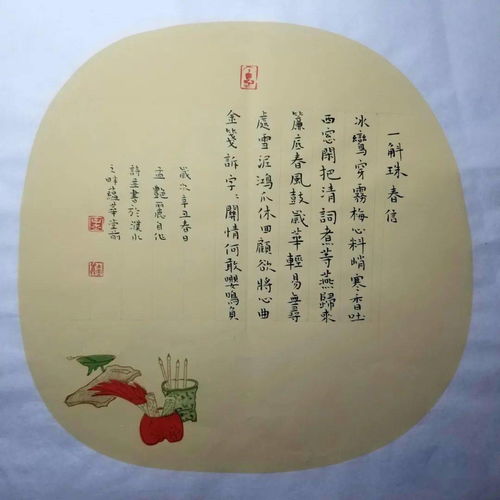 一斛珠春信
冰鸞穿霧梅心料峭寒香吐
西窓閑把清詞煮等燕歸來
簾底春風鼓歲華輕易無尋
處雪泥鴻爪休回顧欲將心曲
金箋訴字〻關情何敢嚶鳴負
歲次辛丑春日
孟艷麗自作
詩並書於濮水
之畔蘊華堂前